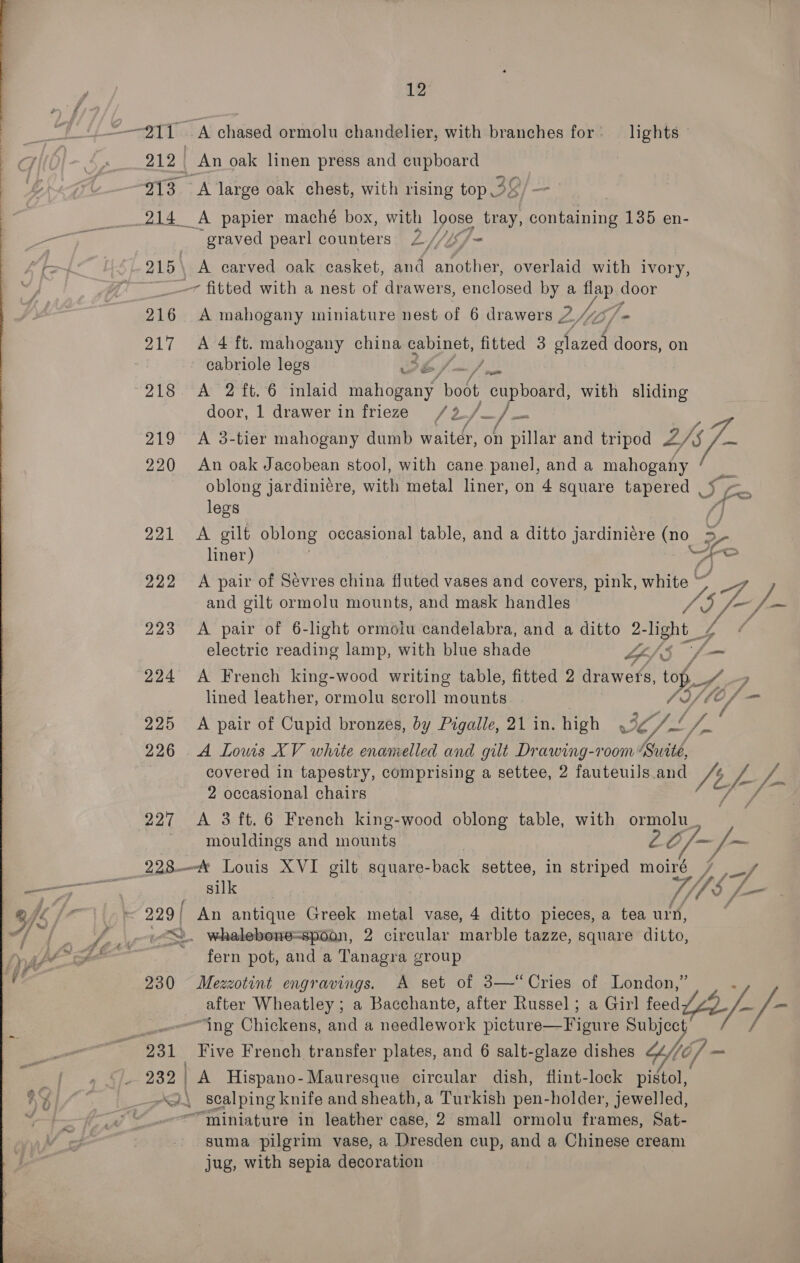 12
211 A chased ormolu chandelier, with branches for lights
212 An oak linen press and cupboard
213 A large oak chest, with rising top 38/—
214 A papier maché box, with loose tray, containing 135 en-
graved pearl counters
215 A carved oak casket, and another, overlaid with ivory,
fitted with a nest of drawers, enclosed by a flap door
216 A mahogany miniature nest of 6 drawers
217 A 4 ft. mahogany china cabinet, fitted 3 glazed doors, on
cabriole legs
218 A 2 ft. 6 inlaid mahogany boot cupboard, with sliding
door, 1 drawer in frieze 12/—/—
219 A 3-tier mahogany dumb waiter, on pillar and tripod
220 An oak Jacobean stool, with cane panel, and a mahogany
oblong jardinière, with metal liner, on 4 square tapered
legs
221 A gilt oblong occasional table, and a ditto jardinière (no
liner)
222 A pair of Sèvres china fluted vases and covers, pink, white
and gilt ormolu mounts, and mask handles
223 A pair of 6-light ormolu candelabra, and a ditto 2-light
electric reading lamp, with blue shade
224 A French king-wood writing table, fitted 2 drawers, top
lined leather, ormolu scroll mounts
225 A pair of Cupid bronzes, by Pigalle, 21 in. high
226 A Louis XV white enamelled and gilt Drawing-room Suite,
covered in tapestry, comprising a settee, 2 fauteuils and
2 occasional chairs
227 A 3 ft. 6 French king-wood oblong table, with ormolu
mouldings and mounts 20/—/—
228 A Louis XVI gilt square-back settee, in striped moiré
silk
229 An antique Greek metal vase, 4 ditto pieces, a tea urn,
whalebone spoon, 2 circular marble tazze, square ditto,
fern pot, and a Tanagra group
230 Mezzotint engravings. A set of 3—“Cries of London,”
after Wheatley; a Bacchante, after Russel; a Girl feed-
ing Chickens, and a needlework picture—Figure Subject
231 Five French transfer plates, and 6 salt-glaze dishes
232 A Hispano-Mauresque circular dish, flint-lock pistol,
scalping knife and sheath, a Turkish pen-holder, jewelled,
miniature in leather case, 2 small ormolu frames, Sat-
suma pilgrim vase, a Dresden cup, and a Chinese cream
jug, with sepia decoration